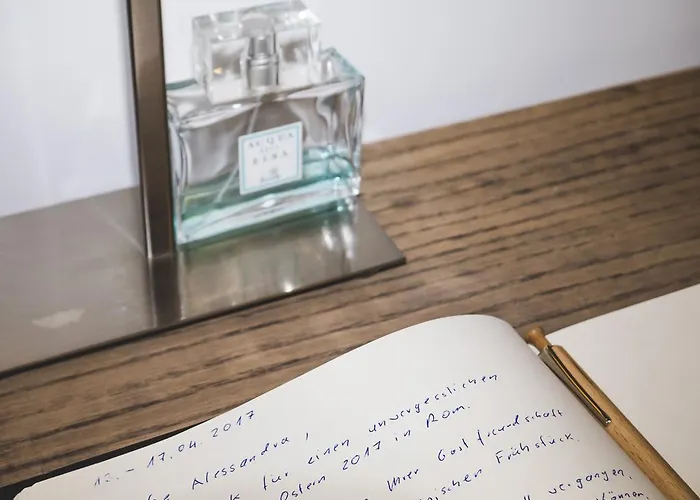 ACQUA
DELL'
ELBA
13. - 17.04.2017
Alessandra,
k für einen unvergesslichen
Ostern 2017 in Rom.
Ihrer Gastfreundschaft
nischen Frühstück.
vergangen.
können